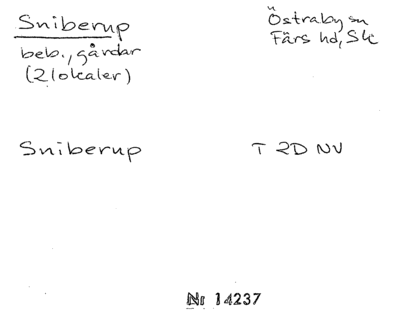 Sniberup
beb., gårdar
(2 lokaler)
Östraby sn
Färs hd, Sk
Sniberup
T 2D NV
Nr 14237